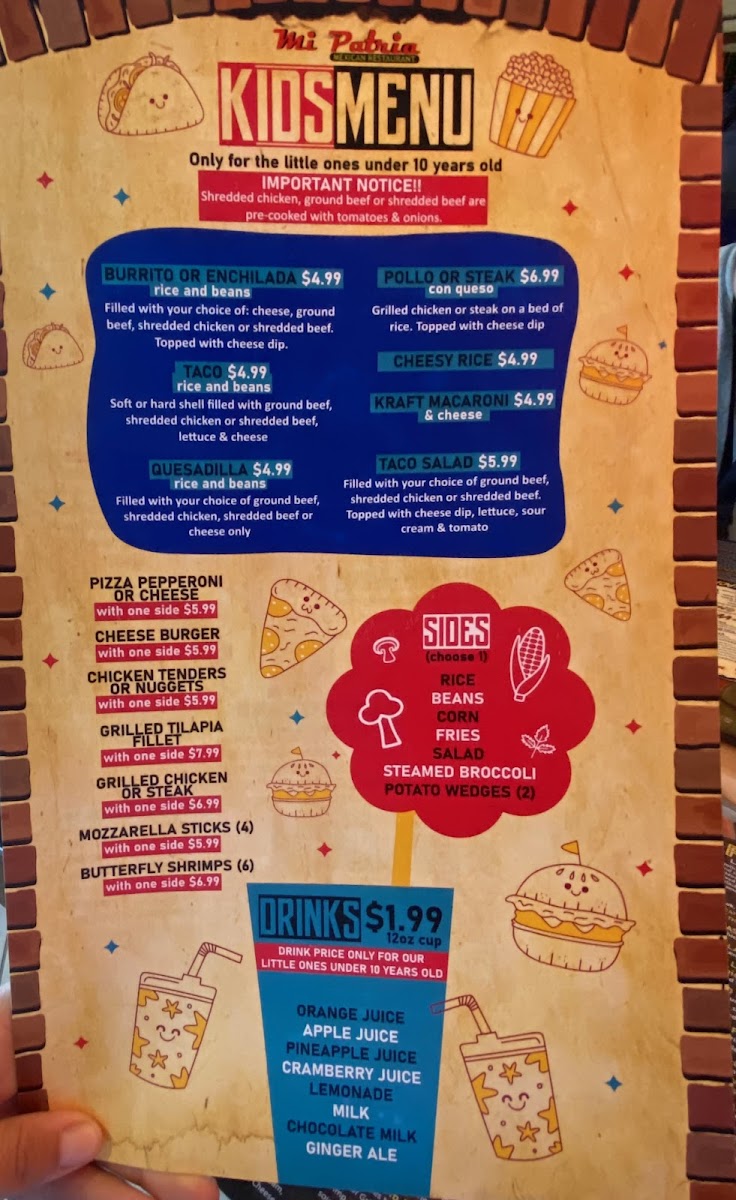 Mi Patria
MEXICAN RESTAURANT
KIDSMENU
Only for the little ones under 10 years old
IMPORTANT NOTICE!!
Shredded chicken, ground beef or shredded beef are
pre-cooked with tomatoes & onions.
BURRITO OR ENCHILADA $4.99
rice and beans
Filled with your choice of: cheese, ground
beef, shredded chicken or shredded beef.
Topped with cheese dip.
TACO $4.99
rice and beans
Soft or hard shell filled with ground beef,
shredded chicken or shredded beef,
lettuce & cheese
QUESADILLA $4.99
rice and beans
Filled with your choice of ground beef,
shredded chicken, shredded beef or
cheese only
POLLO OR STEAK $6.99
con queso
Grilled chicken or steak on a bed of
rice. Topped with cheese dip
CHEESY RICE $4.99
KRAFT MACARONI $4.99
& cheese
TACO SALAD $5.99
Filled with your choice of ground beef,
shredded chicken or shredded beef.
Topped with cheese dip, lettuce, sour
cream & tomato
PIZZA PEPPERONI
OR CHEESE
with one side $5.99
CHEESE BURGER
with one side $5.99
CHICKEN TENDERS
OR NUGGETS
with one side $5.99
GRILLED TILAPIA
FILLET
with one side $7.99
GRILLED CHICKEN
OR STEAK
with one side $6.99
MOZZARELLA STICKS (4)
with one side $5.99
BUTTERFLY SHRIMPS (6)
with one side $6.99
SIDES
(choose 1)
RICE
BEANS
CORN
FRIES
SALAD
STEAMED BROCCOLI
POTATO WEDGES (2)
DRINKS $1.99
12oz cup
DRINK PRICE ONLY FOR OUR
LITTLE ONES UNDER 10 YEARS OLD
ORANGE JUICE
APPLE JUICE
PINEAPPLE JUICE
CRAMBERRY JUICE
LEMONADE
MILK
CHOCOLATE MILK
GINGER ALE